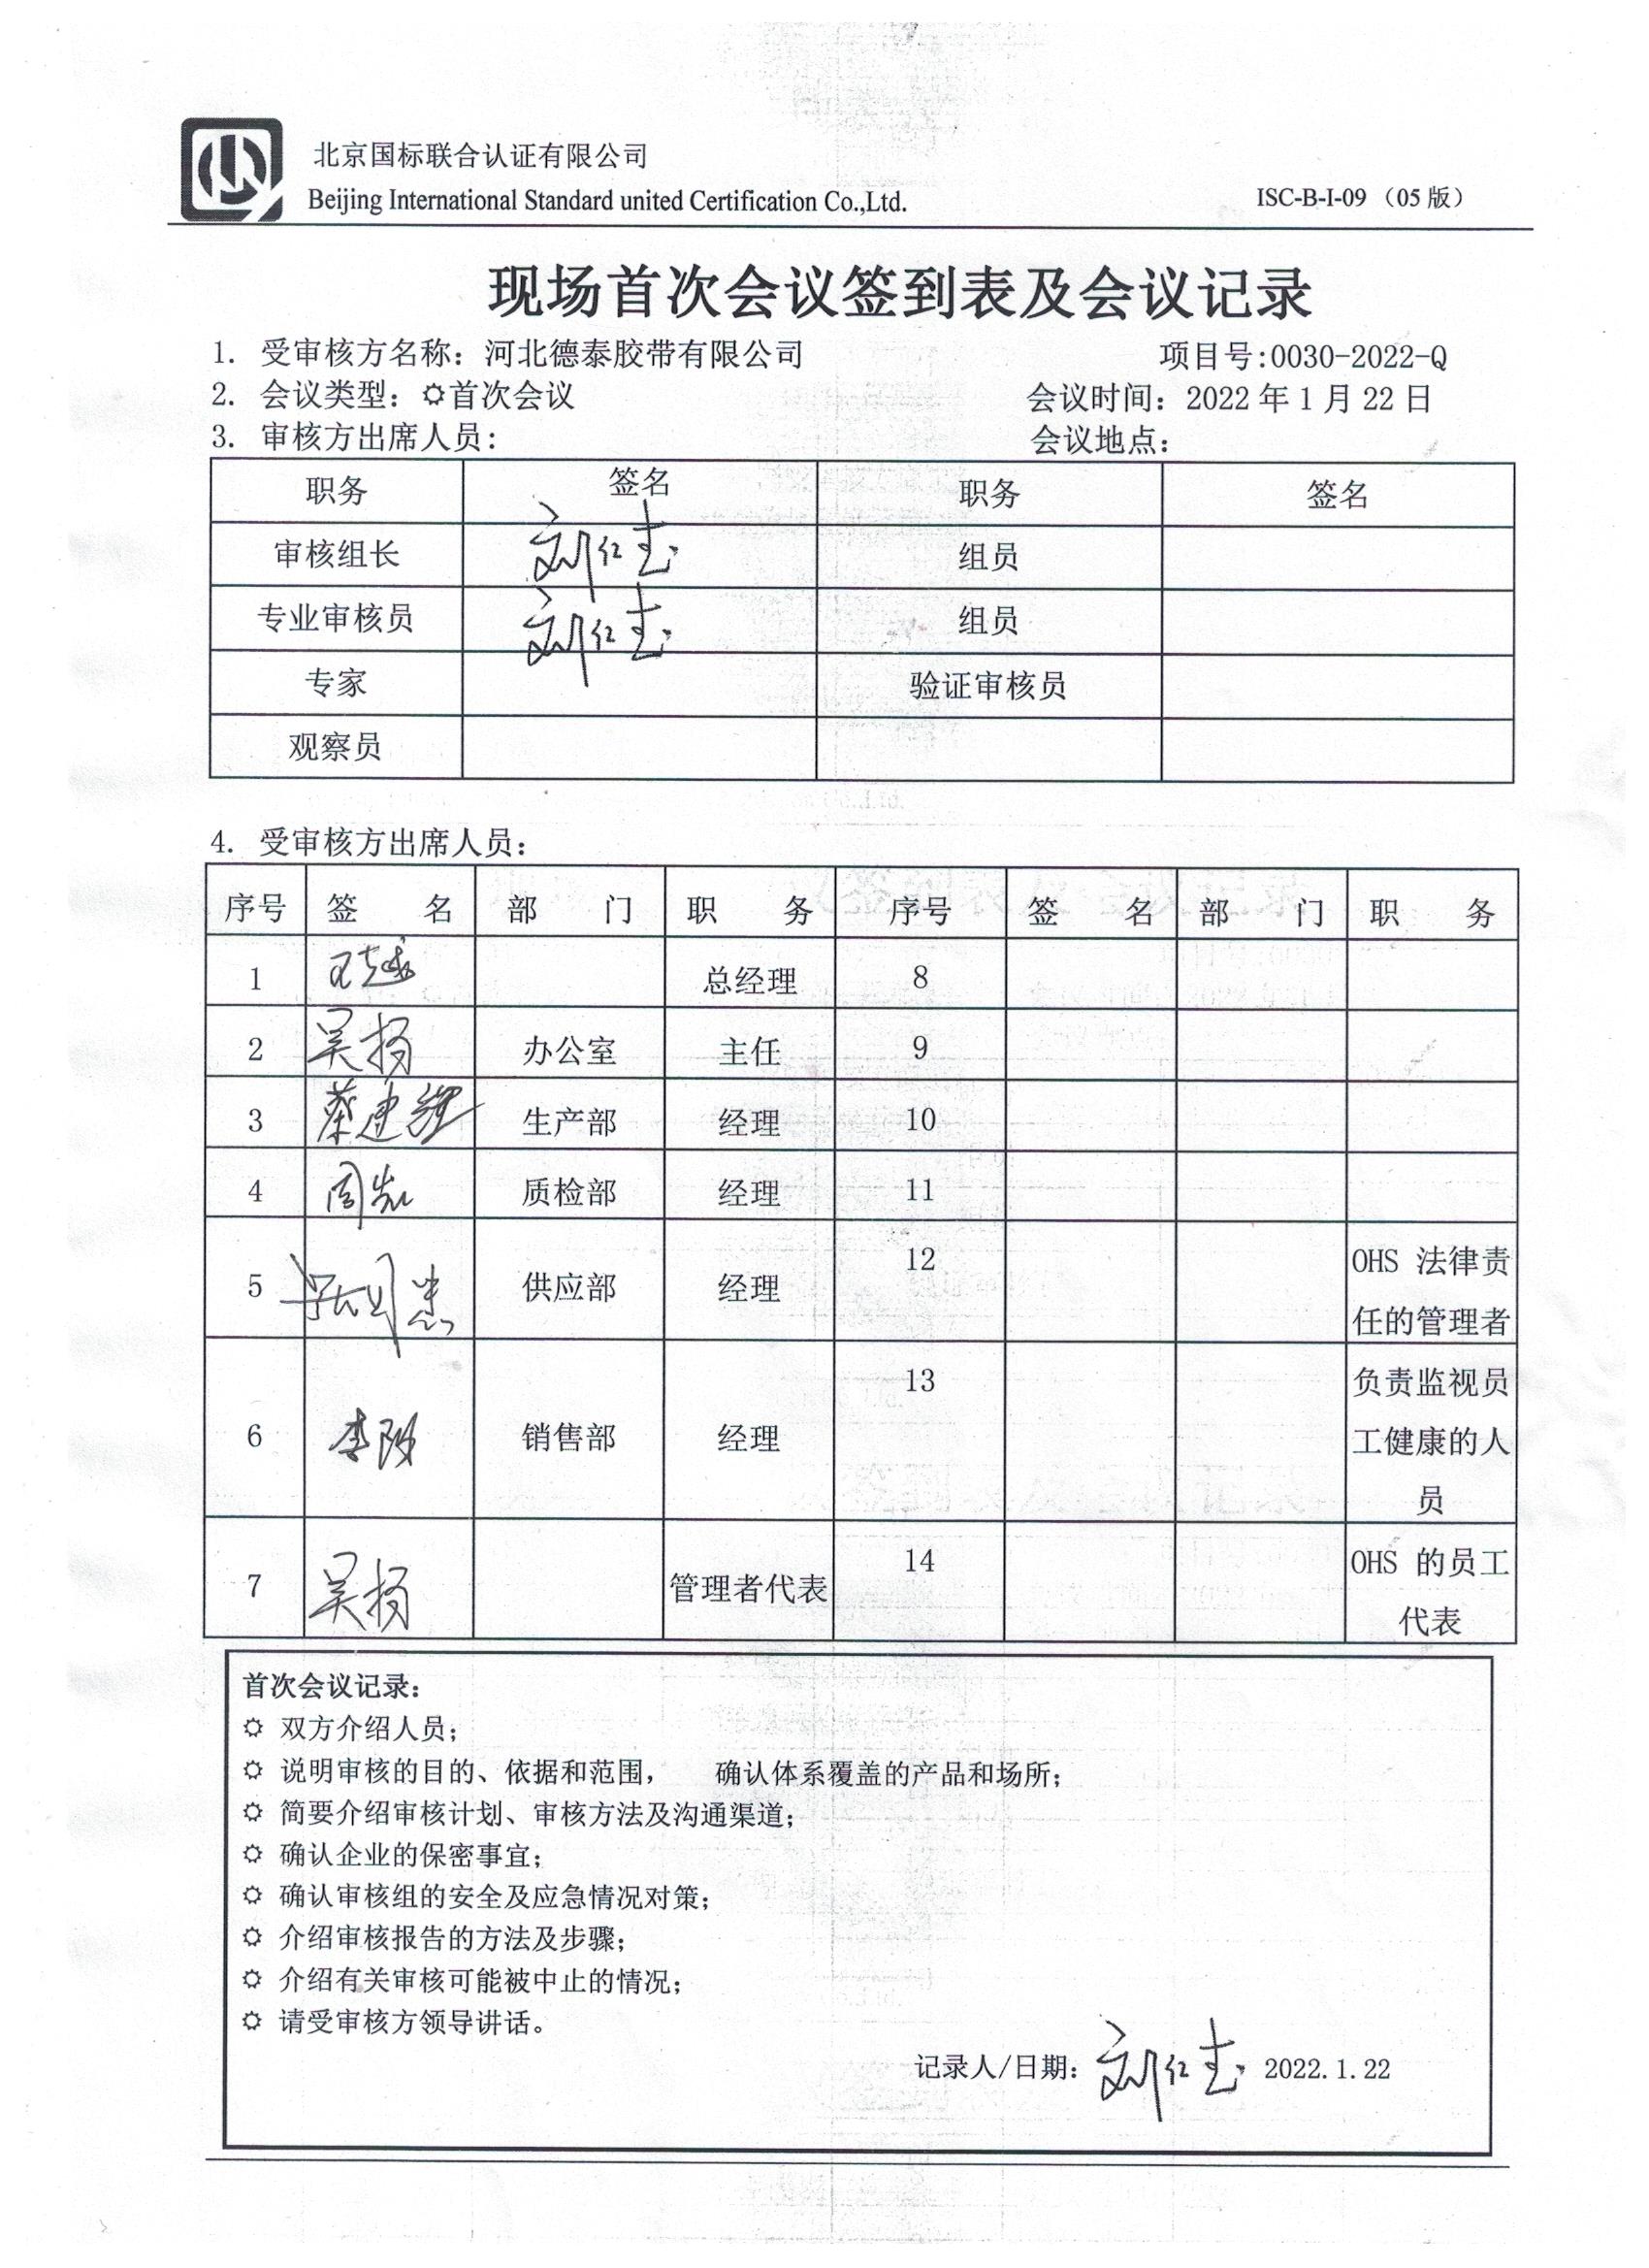 北京国标联合认证有限公司
Beijing International Standard united Certification Co.,Ltd.
ISC-B-I-09 （05 版）
现场首次会议签到表及会议记录
1. 受审核方名称：河北德泰胶带有限公司 项目号:0030-2022-Q
2. 会议类型：首次会议 会议时间：2022 年 1 月 22 日
3. 审核方出席人员： 会议地点：
职务 签名 职务 签名
审核组长 刘红 组员
专业审核员 刘红 组员
专家 验证审核员
观察员
4. 受审核方出席人员：
序号 签 名 部 门 职 务 序号 签 名 部 门 职 务
1 总经理 8
2 吴扬 办公室 主任 9
3 蔡建 生产部 经理 10
4 周 质检部 经理 11
5 供应部 经理 12 OHS 法律责
任的管理者
6 李 销售部 经理 13 负责监视员
工健康的人
员
7 吴扬 管理者代表 14 OHS 的员工
代表
首次会议记录：
双方介绍人员；
说明审核的目的、依据和范围， 确认体系覆盖的产品和场所；
简要介绍审核计划、审核方法及沟通渠道；
确认企业的保密事宜；
确认审核组的安全及应急情况对策；
介绍审核报告的方法及步骤；
介绍有关审核可能被中止的情况；
请受审核方领导讲话。
记录人/日期： 刘红 2022.1.22